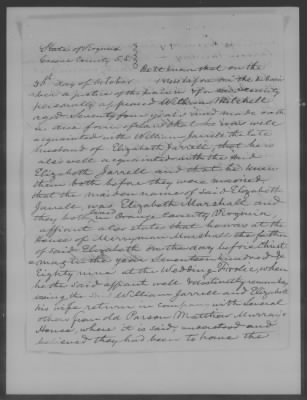 State of Virginia
Greene County S.S.
Be it known that on the
30th day of October 1844 before me the subscri
ber a justice of the peace in & for said county
personally appeared William Mitchell
aged Seventy four years and made oath
in due form of law that he was well
acquainted with William Jarrell the late
husband of Elizabeth Jarrell, that he is
also well acquainted with the said
Elizabeth Jarrell and that he knew
them both before they were married
that the maiden name of said Elizabeth
Jarrell was Elizabeth Marshall and
they both lived in Orange County Virginia,
affiant also states that he was at the
House of Merryman Marshall the father
of said Elizabeth on the day before Christ
mas in the year Seventeen hundred &
Eighty nine at the Wedding Frolic, when
he the said affiant well & distinctly remembers
seeing the William Jarrell and Elizabeth
his wife return in company with several
others from old Parson Matthew Murray's
House, where it is said, understood and
believed they had been to have the